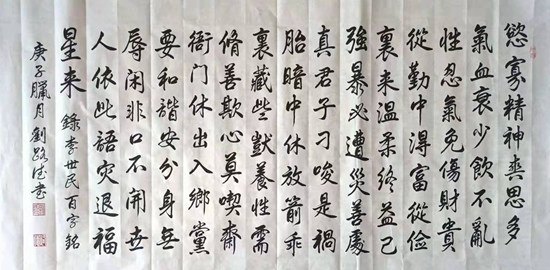 慾寡精神爽思多
氣血衰少飲不亂
性忍氣免傷財貴
從勤中得富從儉
裏来温柔終益己
強暴必遭災善處
真君子刁唆是禍
胎暗中休放箭乖
裏藏些獃養性需
脩善欺心莫喫齋
衙门休出入鄉黨
要和諧安分身無
辱闲非口不開世
人依此語灾退福
星来 錄李世民百字銘
庚子臘月劉路书